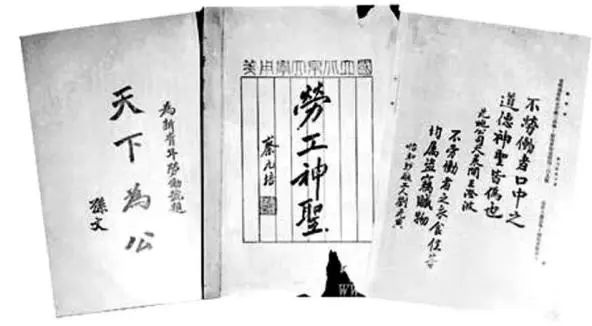 為新青年勞働號題
天下為公
孫文
國立北京大學用箋
勞工神聖
蔡元培
不勞働者口中之
道德神聖皆偽也
王澄波
不勞働者之衣食住等
均属盗竊贓物